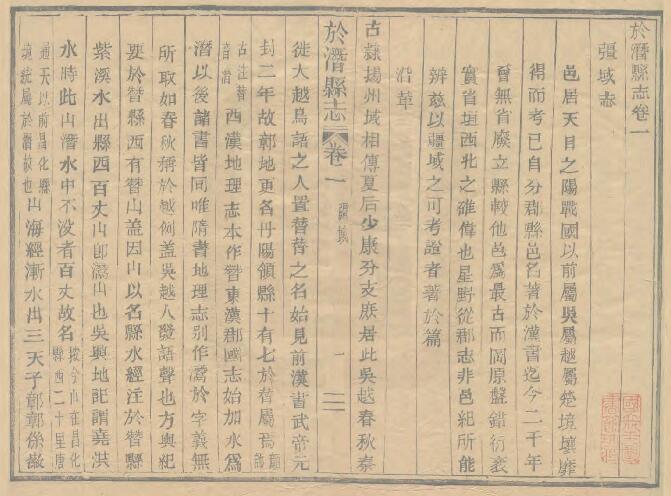 於潛縣志卷一
疆域志
邑居天目之陽戰國以前屬吳屬越屬楚境壤靡
得而考已自分郡縣邑名著於漢書迄今二千年
曾無省廢立縣較他邑爲最古而岡原盤錯衍袤
實省垣西北之雄偉也星野從郡志非邑紀所能
辨兹以疆域之可考證者著於篇
沿革
古隸揚州域相傳夏后少康分支庶居此吳越春秋秦
於潛縣志
卷一
疆域
一
徙大越鳥語之人置朁朁之名始見前漢書武帝元
封二年故鄣地更名丹陽領縣十有七於朁屬焉顏師
古注朁音潛西漢地理志本作朁東漢郡國志始加水爲
潛以後諸書皆同唯隋書地理志別作灊於字義無
所取如春秋稱於越例蓋吳越人發語聲也方輿紀
要於朁縣西有朁山蓋因山以名縣水經注於朁縣
紫溪水出縣西百丈山卽灊山也吳興地記謂堯洪
水時此山潛水中不没者百丈故名按今山在昌化縣西二十里唐
通天以前昌化縣境統屬於潛故也山海經漸水出三天子鄣鄣係故